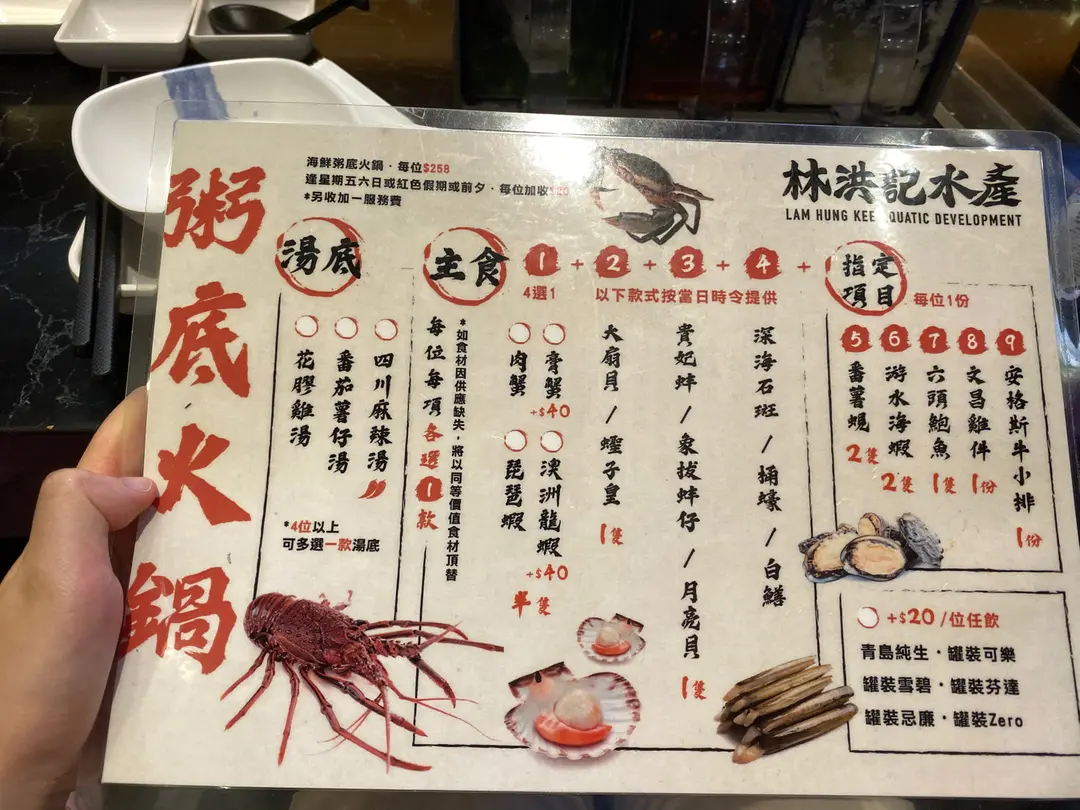 粥底火鍋
海鮮粥底火鍋·每位$258
逢星期五六日或紅色假期或前夕·每位加收$20
*另收加一服務費
林洪記水產
LAM HUNG KEE AQUATIC DEVELOPMENT
湯底
花膠雞湯
番茄薯仔湯
四川麻辣湯
*4位以上
可多選一款湯底
主食
每位每項各選1款
*如食材因供應缺失，將以同等價值食材頂替
1 + 2 + 3 + 4 +
4選1
以下款式按當日時令提供
肉蟹
膏蟹
+$40
琵琶蝦
澳洲龍蝦
+$40
半隻
大扇貝/蟶子皇
1隻
貴妃蚌/象拔蚌仔/月亮貝
1隻
深海石斑/桶蠔/白鱔
指定項目
每位1份
5
番薯蜆
2隻
6
游水海蝦
2隻
7
六頭鮑魚
1隻
8
文昌雞件
1份
9
安格斯牛小排
1份
+$20/位任飲
青島純生·罐裝可樂
罐裝雪碧·罐裝芬達
罐裝忌廉·罐裝Zero